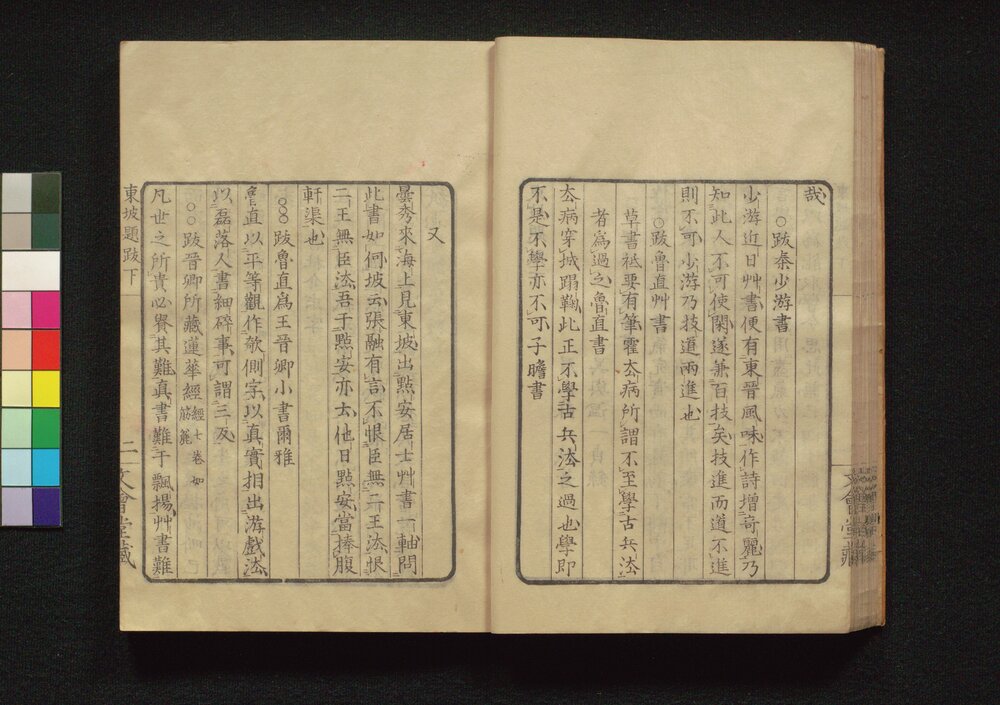 哉
○跋秦少游書
少游近日艸書便有東晉風味作詩增奇麗乃
知此人不可使閑遂兼百技矣技進而道不進
則不可少游乃技道兩進也
○跋魯直艸書
草書祗要有筆霍去病所謂不至學古兵法
者爲過之魯直書
去病穿城蹋鞠此正不學古兵法之過也學即
不是不學亦不可子瞻書
又
曇秀來海上見東坡出黠安居士艸書一軸問
此書如何坡云張融有言不恨臣無二王法恨
二王無臣法吾于黠安亦云他日黠安當捧腹
軒渠也
○○跋魯直爲王晉卿小書爾雅
魯直以平等觀作欹側字以眞實相出游戲法
以磊落人書細碎事可謂三反
○○跋晉卿所藏蓮華經經七卷如筯麄
凡世之所貴必貴其難眞書難于飄揚艸書難
東坡題跋下
二
文會堂藏
文會堂藏